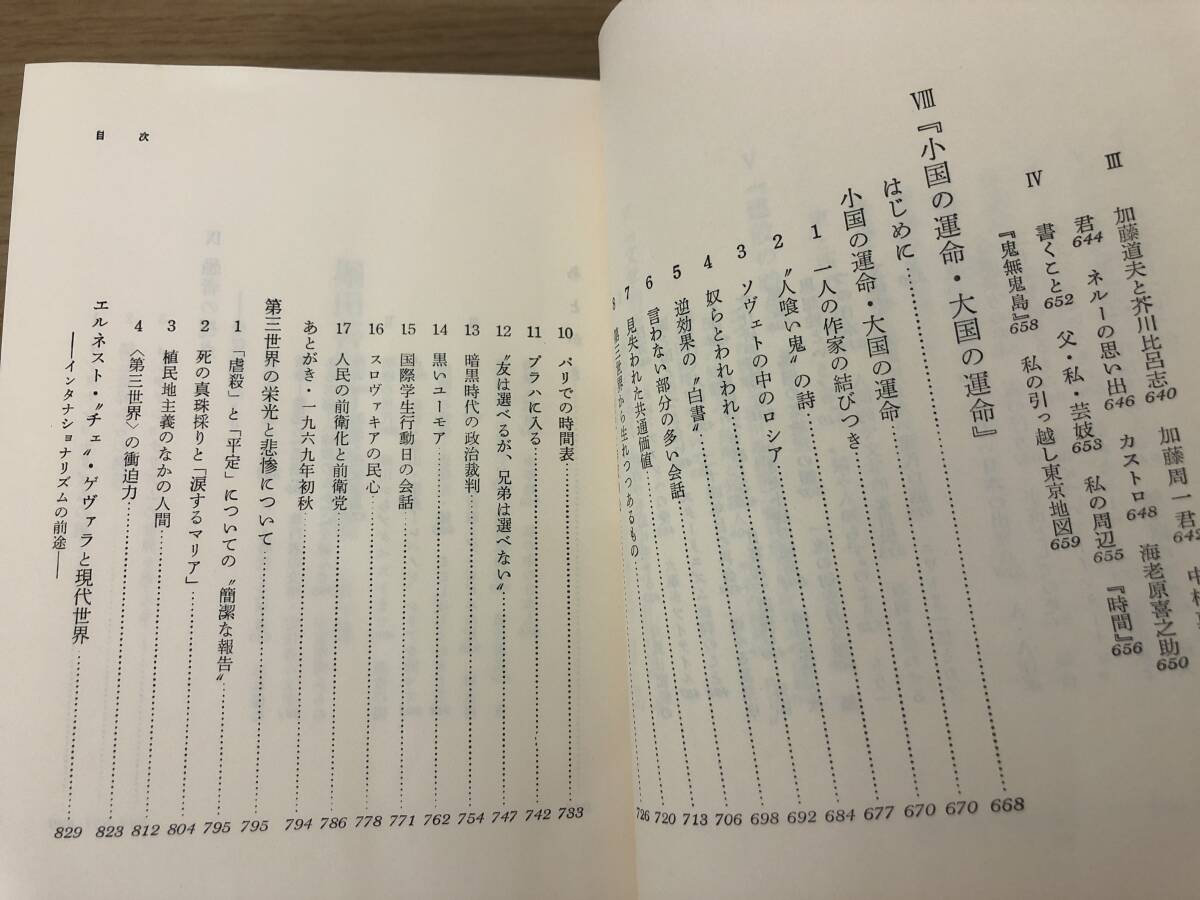 Ⅲ 加藤道夫と芥川比呂志640 加藤周一君642 中村
君644 ネルーの思い出646 カストロ648 海老原喜之助650
Ⅳ 書くこと652 父・私・芸妓653 私の周辺655 『時間』656
『鬼無鬼島』658 私の引っ越し東京地図659
Ⅷ 『小国の運命・大国の運命』……668
はじめに……670
小国の運命・大国の運命……670
1 一人の作家の結びつき……677
2 〝人喰い鬼〟の詩……684
3 ソヴェトの中のロシア……692
4 奴らとわれわれ……698
5 逆効果の〝白書〟……706
6 言わない部分の多い会話……713
7 見失われた共通価値……720
8 第三世界から生れつつあるもの……726
10 パリでの時間表……733
11 プラハに入る……742
12 〝友は選べるが、兄弟は選べない〟……747
13 暗黒時代の政治裁判……754
14 黒いユーモア……762
15 国際学生行動日の会話……771
16 スロヴァキアの民心……778
17 人民の前衛化と前衛党……786
あとがき・一九六九年初秋……794
第三世界の栄光と悲惨について……795
1 「虐殺」と「平定」についての〝簡潔な報告〟……795
2 死の真珠採りと「涙するマリア」……804
3 植民地主義のなかの人間……812
4 〈第三世界〉の衝迫力……823
エルネスト・〝チェ〟・ゲヴァラと現代世界……829
――インタナショナリズムの前途――
目次